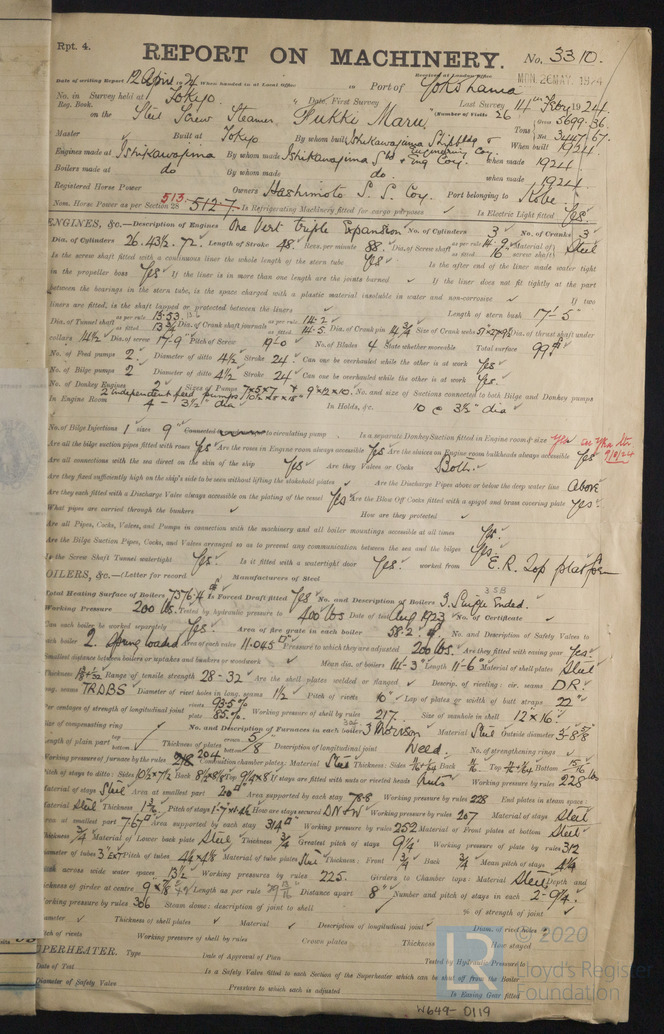 Rpt. 4.
REPORT ON MACHINERY. No. 3310.
Received at London Office MON. 26 MAY. 1924
Date of writing Report 12 April 1924 When handed in at Local Office Port of Yokohama
No. in Reg. Book. Survey held at Tokyo Date, First Survey Last Survey 14th Feby 1924.
on the Steel Screw Steamer Fukkei Maru (Number of Visits 26
Tons Gross 5699.36. Net 3447.67.
Master Built at Tokyo By whom built Ishikawajima Shipbldg & Engineering Coy. When built 1924
Engines made at Ishikawajima By whom made Ishikawajima Sbdg & Eng Coy. when made 1924
Boilers made at do By whom made do. when made 1924
Registered Horse Power Owners Hashimoto S. S. Coy. Port belonging to Kobe
Nom. Horse Power as per Section 28 513 512.7 Is Refrigerating Machinery fitted for cargo purposes Is Electric Light fitted Yes.
ENGINES, &c.—Description of Engines One Vert Triple Expansion No. of Cylinders 3 No. of Cranks 3
Dia. of Cylinders 26. 43½. 72. Length of Stroke 48. Revs. per minute 88. Dia. of Screw shaft as per rule 14.9 as fitted 16 Material of screw shaft Steel
Is the screw shaft fitted with a continuous liner the whole length of the stern tube Yes Is the after end of the liner made water tight
in the propeller boss Yes If the liner is in more than one length are the joints burned If the liner does not fit tightly at the part
between the bearings in the stern tube, is the space charged with a plastic material insoluble in water and non-corrosive If two
liners are fitted, is the shaft lapped or protected between the liners Length of stern bush 17'-5"
Dia. of Tunnel shaft as per rule 13.53 as fitted 13¾ Dia. of Crank shaft journals as per rule 14.2 as fitted 14.5 Dia. of Crank pin 14¾ Size of Crank webs Dia. of thrust shaft under
collars 14½ Dia. of screw 17-9 Pitch of Screw 19-0 No. of Blades 4 State whether moveable Total surface 99
No. of Feed pumps 2 Diameter of ditto 4½ Stroke 24 Can one be overhauled while the other is at work Yes
No. of Bilge pumps 2 Diameter of ditto 4½ Stroke 24 Can one be overhauled while the other is at work Yes.
No. of Donkey Engines 2 Sizes of Pumps 7x5x7 & 9x12x10. No. and size of Suctions connected to both Bilge and Donkey pumps
2 independent feed pumps
In Engine Room 4 - 3½" dia In Holds, &c. 10 @ 3½" dia
No. of Bilge Injections 1 sizes 9" Connected to circulating pump Is a separate Donkey Suction fitted in Engine room & size Yes
Are all the bilge suction pipes fitted with roses Yes Are the roses in Engine room always accessible Yes Are the sluices on Engine room bulkheads always accessible Yes
Are all connections with the sea direct on the skin of the ship Yes Are they Valves or Cocks Both.
Are they fixed sufficiently high on the ship's side to be seen without lifting the stokehold plates Are the Discharge Pipes above or below the deep water line Above
Are they each fitted with a Discharge Valve always accessible on the plating of the vessel Yes Are the Blow Off Cocks fitted with a spigot and brass covering plate Yes
What pipes are carried through the bunkers How are they protected
Are all Pipes, Cocks, Valves, and Pumps in connection with the machinery and all boiler mountings accessible at all times Yes.
Are the Bilge Suction Pipes, Cocks, and Valves arranged so as to prevent any communication between the sea and the bilges Yes
Is the Screw Shaft Tunnel watertight Yes. Is it fitted with a watertight door Yes. worked from E.R. Top platform
BOILERS, &c.—(Letter for record Manufacturers of Steel
Total Heating Surface of Boilers 7376.4 Is Forced Draft fitted Yes No. and Description of Boilers 3. Single Ended.
Working Pressure 200 lbs. Tested by hydraulic pressure to 400 lbs Date of test Aug 1923 No. of Certificate
Can each boiler be worked separately Yes. Area of fire grate in each boiler 58.2 No. and Description of Safety Valves to
each boiler 2. Spring loaded Area of each valve 11.045 Pressure to which they are adjusted 200 lbs. Are they fitted with easing gear Yes.
Smallest distance between boilers or uptakes and bunkers or woodwork Mean dia. of boilers 14'-3" Length 11'-6" Material of shell plates Steel
Thickness Range of tensile strength 28-32 Are the shell plates welded or flanged Descrip. of riveting: cir. seams D.R.
long. seams TRDBS Diameter of rivet holes in long. seams 1½ Pitch of rivets 10" Lap of plates or width of butt straps 22"
Per centages of strength of longitudinal joint rivets 93.5% plate 85.% Working pressure of shell by rules 217. Size of manhole in shell 12 x 16.
Size of compensating ring No. and Description of Furnaces in each boiler 3 Morison Material Steel Outside diameter
Length of plain part top bottom Thickness of plates crown 5 bottom 8 Description of longitudinal joint Weld. No. of strengthening rings
Working pressure of furnace by the rules 204 Combustion chamber plates: Material Steel Thickness: Sides Back Top Bottom
Pitch of stays to ditto: Sides 10½ x 7½ Back Top If stays are fitted with nuts or riveted heads Nuts Working pressure by rules 228 lbs
Material of stays Steel Area at smallest part Area supported by each stay 78.8 Working pressure by rules 228 End plates in steam space:
Material Steel Thickness Pitch of stays How are stays secured DN+W Working pressure by rules 207 Material of stays Steel
Area at smallest part 7.67 Area supported by each stay 314 Working pressure by rules 252 Material of Front plates at bottom Steel
Thickness ¾ Material of Lower back plate Steel Thickness ¾ Greatest pitch of stays 9¼ Working pressure of plate by rules 312
Diameter of tubes Pitch of tubes 4¼ x 4⅛ Material of tube plates Steel Thickness: Front ¾ Back ¾ Mean pitch of stays
Pitch across wide water spaces 13½ Working pressures by rules 225. Girders to Chamber tops: Material Steel Depth and
thickness of girder at centre Length as per rule Distance apart 8" Number and pitch of stays in each 2 - 9¼.
Working pressure by rules 306 Steam dome: description of joint to shell % of strength of joint
Diameter Thickness of shell plates Material Description of longitudinal joint Diam. of rivet holes
Pitch of rivets Working pressure of shell by rules Crown plates Thickness How stayed
SUPERHEATER. Type Date of Approval of Plan Tested by Hydraulic Pressure to
Date of Test Is a Safety Valve fitted to each Section of the Superheater which can be shut off from the Boiler
Diameter of Safety Valve Pressure to which each is adjusted Is Easing Gear fitted
© 2020
LR Lloyd's Register Foundation
W649-0119